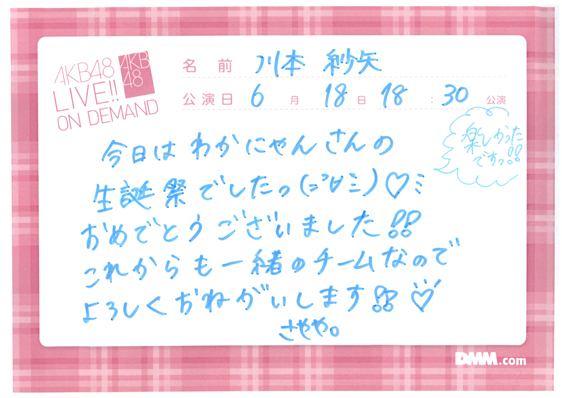 AKB48
LIVE!!
ON DEMAND
AKB
48
名前 川本 紗矢
公演日 6月 18日 18:30 公演
楽しかった
ですっ!!
今日は わかにゃんさんの
生誕祭でしたっ(=ﾟ∀ﾟミ)♡ミ
おめでとうございました!!
これからも一緒のチームなので
よろしくおねがいします!!♡
さやや。
DMM.com